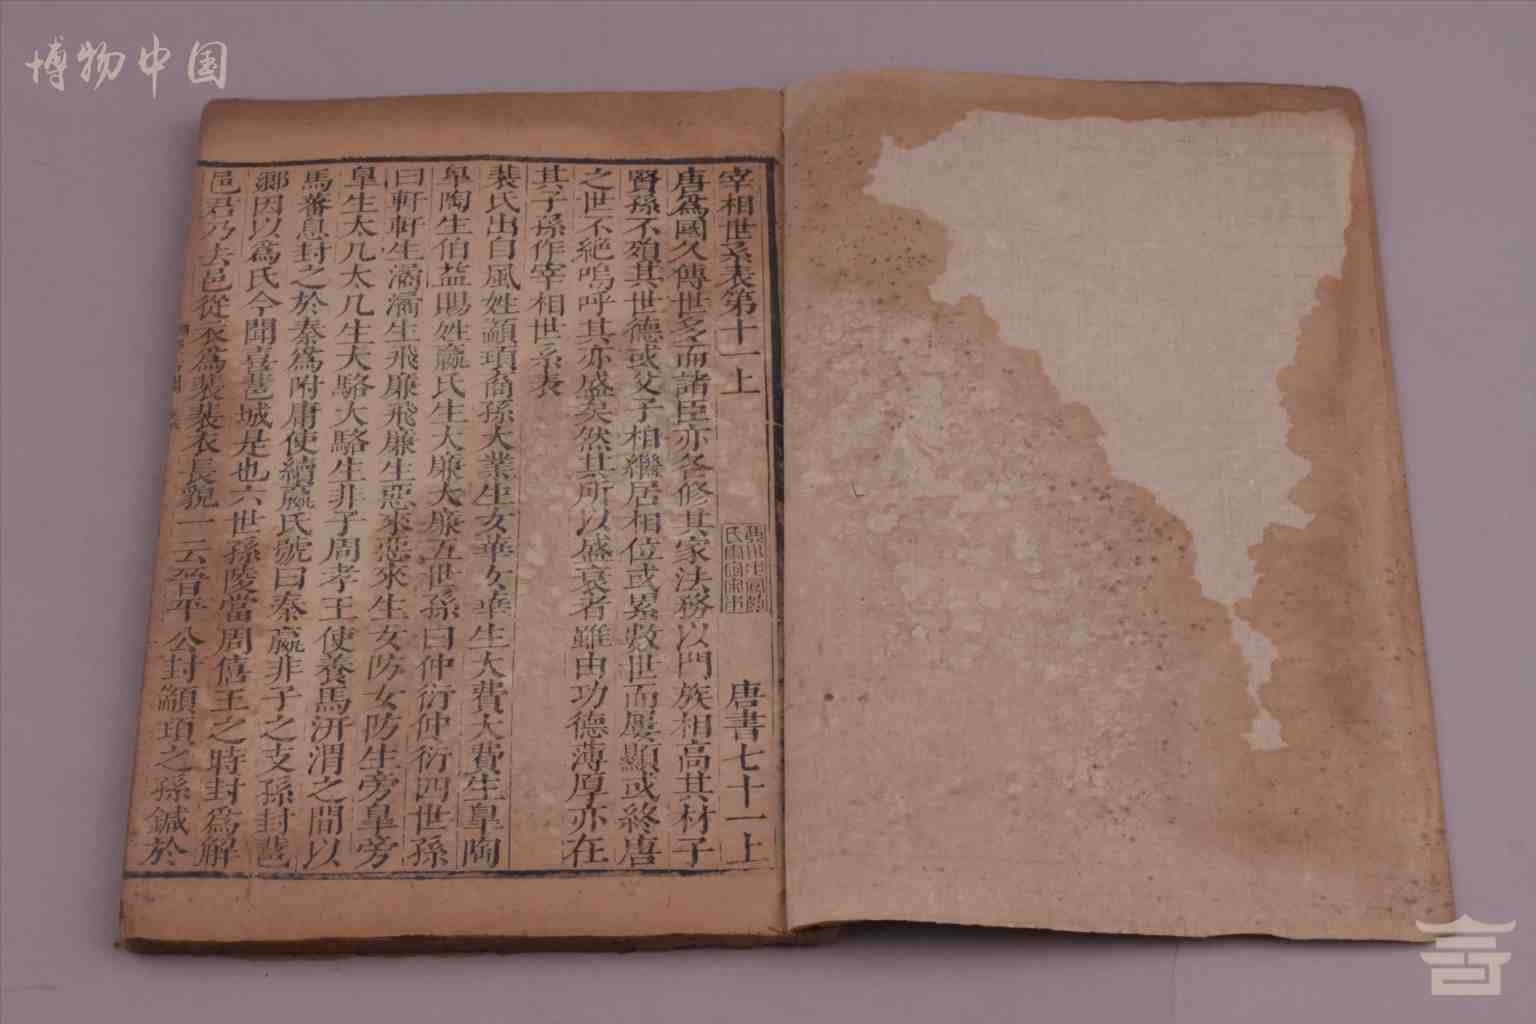 博物中国
宰相世系表第十一上
唐書七十一上
唐爲國久傳世多而諸臣亦各修其家法務以門族相高其材子
賢孫不殞其世德或父子相繼居相位或累數世而屢顯或終唐
之世不絕嗚呼其亦盛矣然其所以盛衰者雖由功德薄厚亦在
其子孫作宰相世系表
裴氏出自風姓顓頊裔孫大業生女華女華生大費大費生臯陶
臯陶生伯益賜姓嬴氏生大廉大廉五世孫曰仲衍仲衍四世孫
曰軒軒生潏潏生飛廉飛廉生惡來惡來生女防女防生旁臯旁
臯生太几太几生大駱大駱生非子周孝王使養馬汧渭之間以
馬蕃息封之於秦爲附庸使續嬴氏號曰秦嬴非子之支孫封𨛬
鄉因以爲氏今聞喜𨛬城是也六世孫陵當周僖王之時封爲解
邑君乃去邑從衣爲裴裴衣長貌一云晉平公封顓頊之孫鍼於